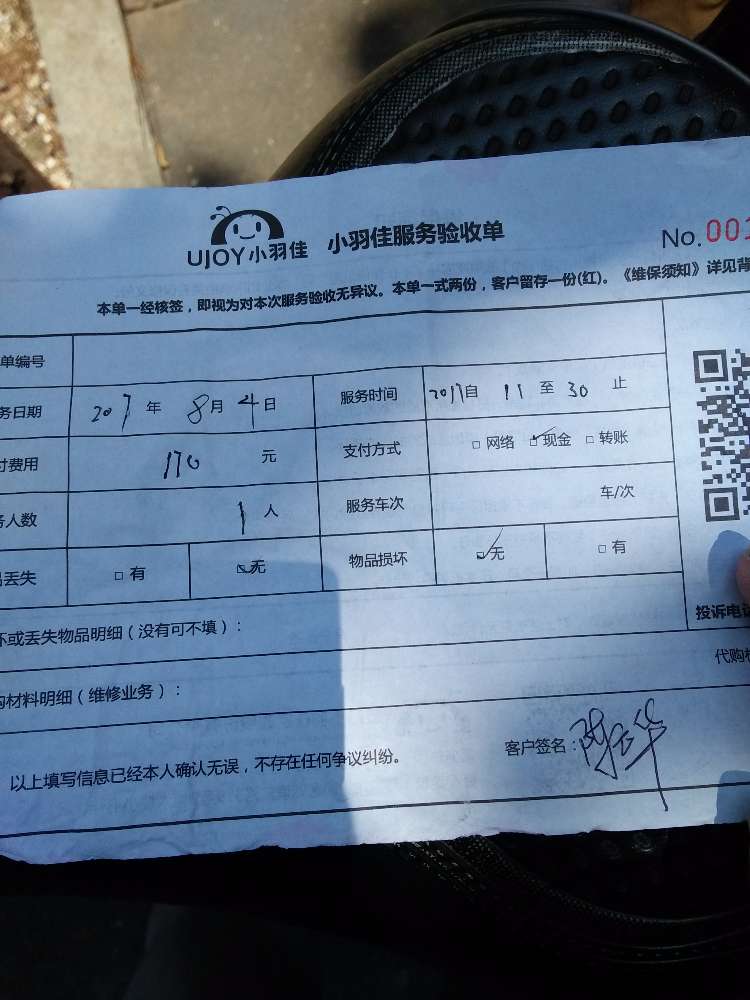 UJOY小羽佳 小羽佳服务验收单 No.001
本单一经核签，即视为对本次服务验收无异议。本单一式两份，客户留存一份(红)。《维保须知》详见背
单编号
务日期 207年 8月 4日 服务时间 2017自 11 至 30 止
付费用 170 元 支付方式 □ 网络 ☑ 现金 □ 转账
务人数 1人 服务车次 车/次
品丢失 □ 有 ☑ 无 物品损坏 ☑ 无 □ 有
投诉电话
坏或丢失物品明细（没有可不填）：
代购材
购材料明细（维修业务）：
以上填写信息已经本人确认无误，不存在任何争议纠纷。 客户签名：